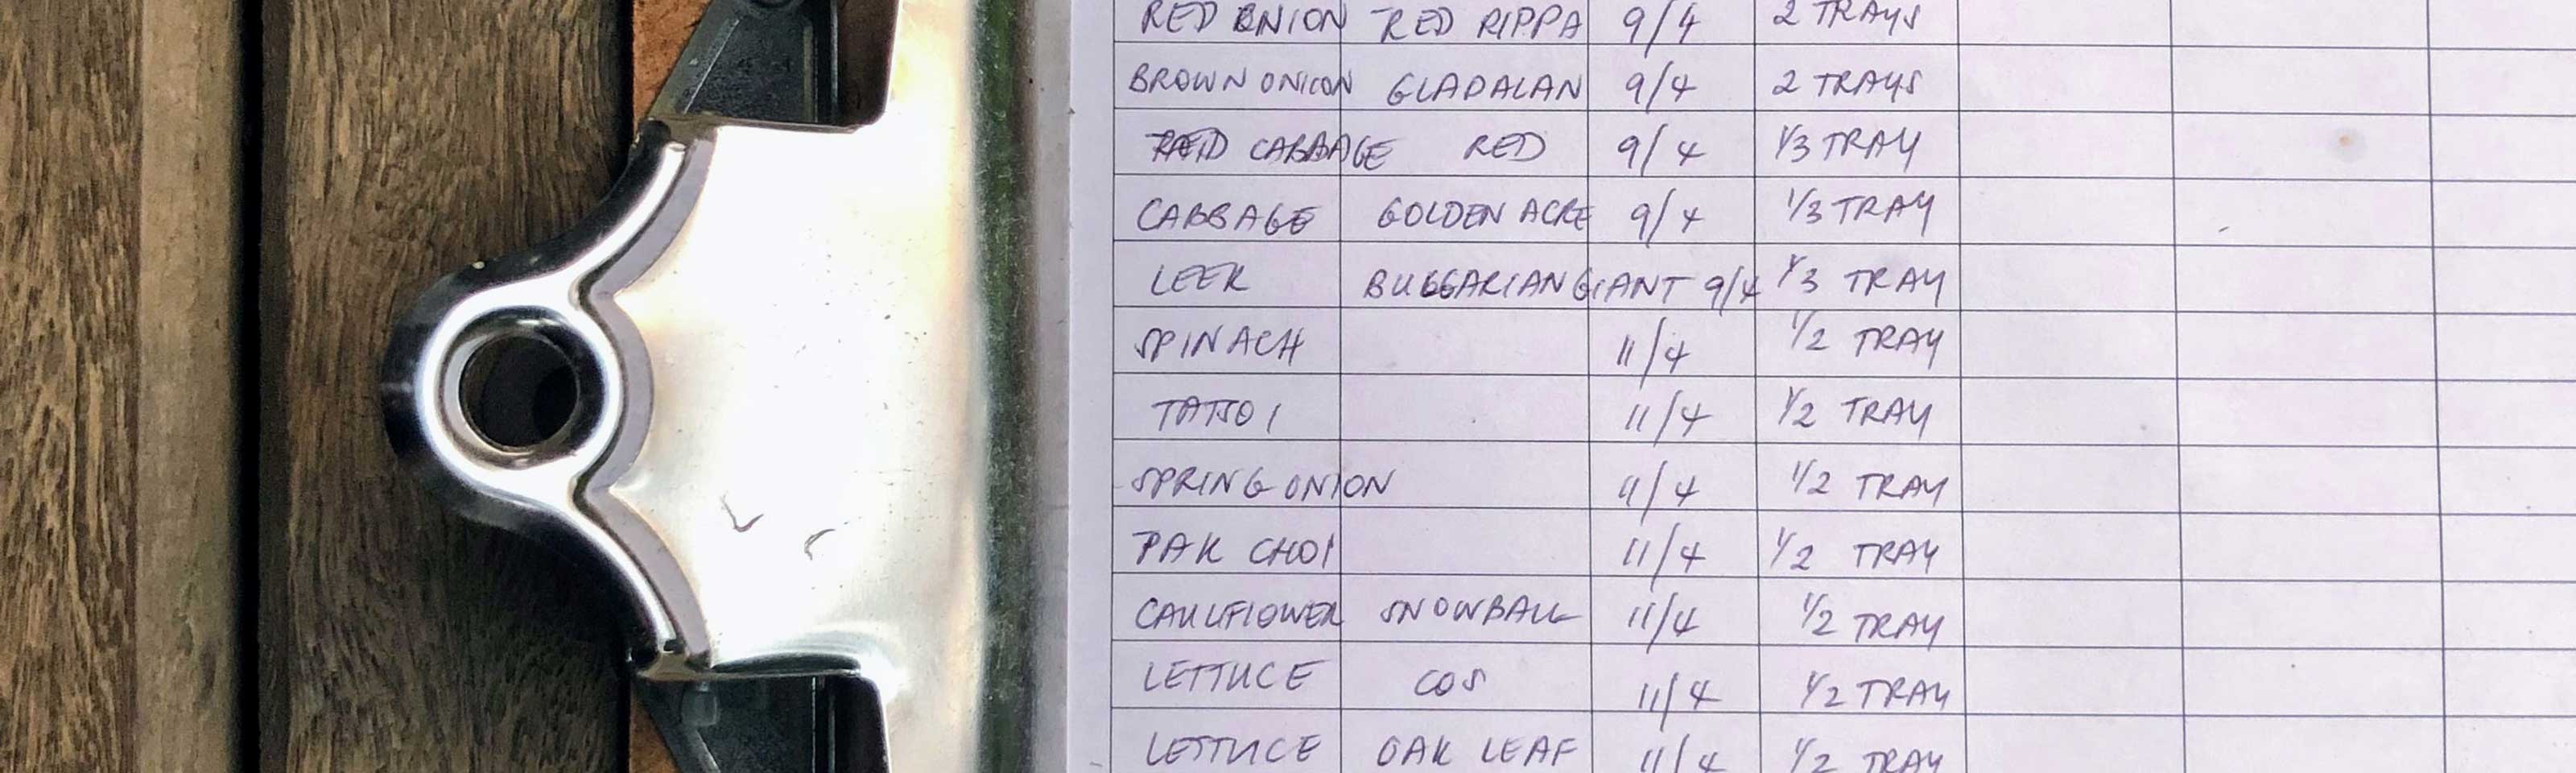 RED ONION RED RIPPA 9/4 2 TRAYS
BROWN ONION GLADALAN 9/4 2 TRAYS
RED CABBAGE RED 9/4 1/3 TRAY
CABBAGE GOLDEN ACRE 9/4 1/3 TRAY
LEEK BULGARIAN GIANT 9/4 1/3 TRAY
SPINACH 11/4 1/2 TRAY
TATSOI 11/4 1/2 TRAY
SPRING ONION 11/4 1/2 TRAY
PAK CHOI 11/4 1/2 TRAY
CAULIFLOWER SNOWBALL 11/4 1/2 TRAY
LETTUCE COS 11/4 1/2 TRAY
LETTUCE OAK LEAF 11/4 1/2 TRAY